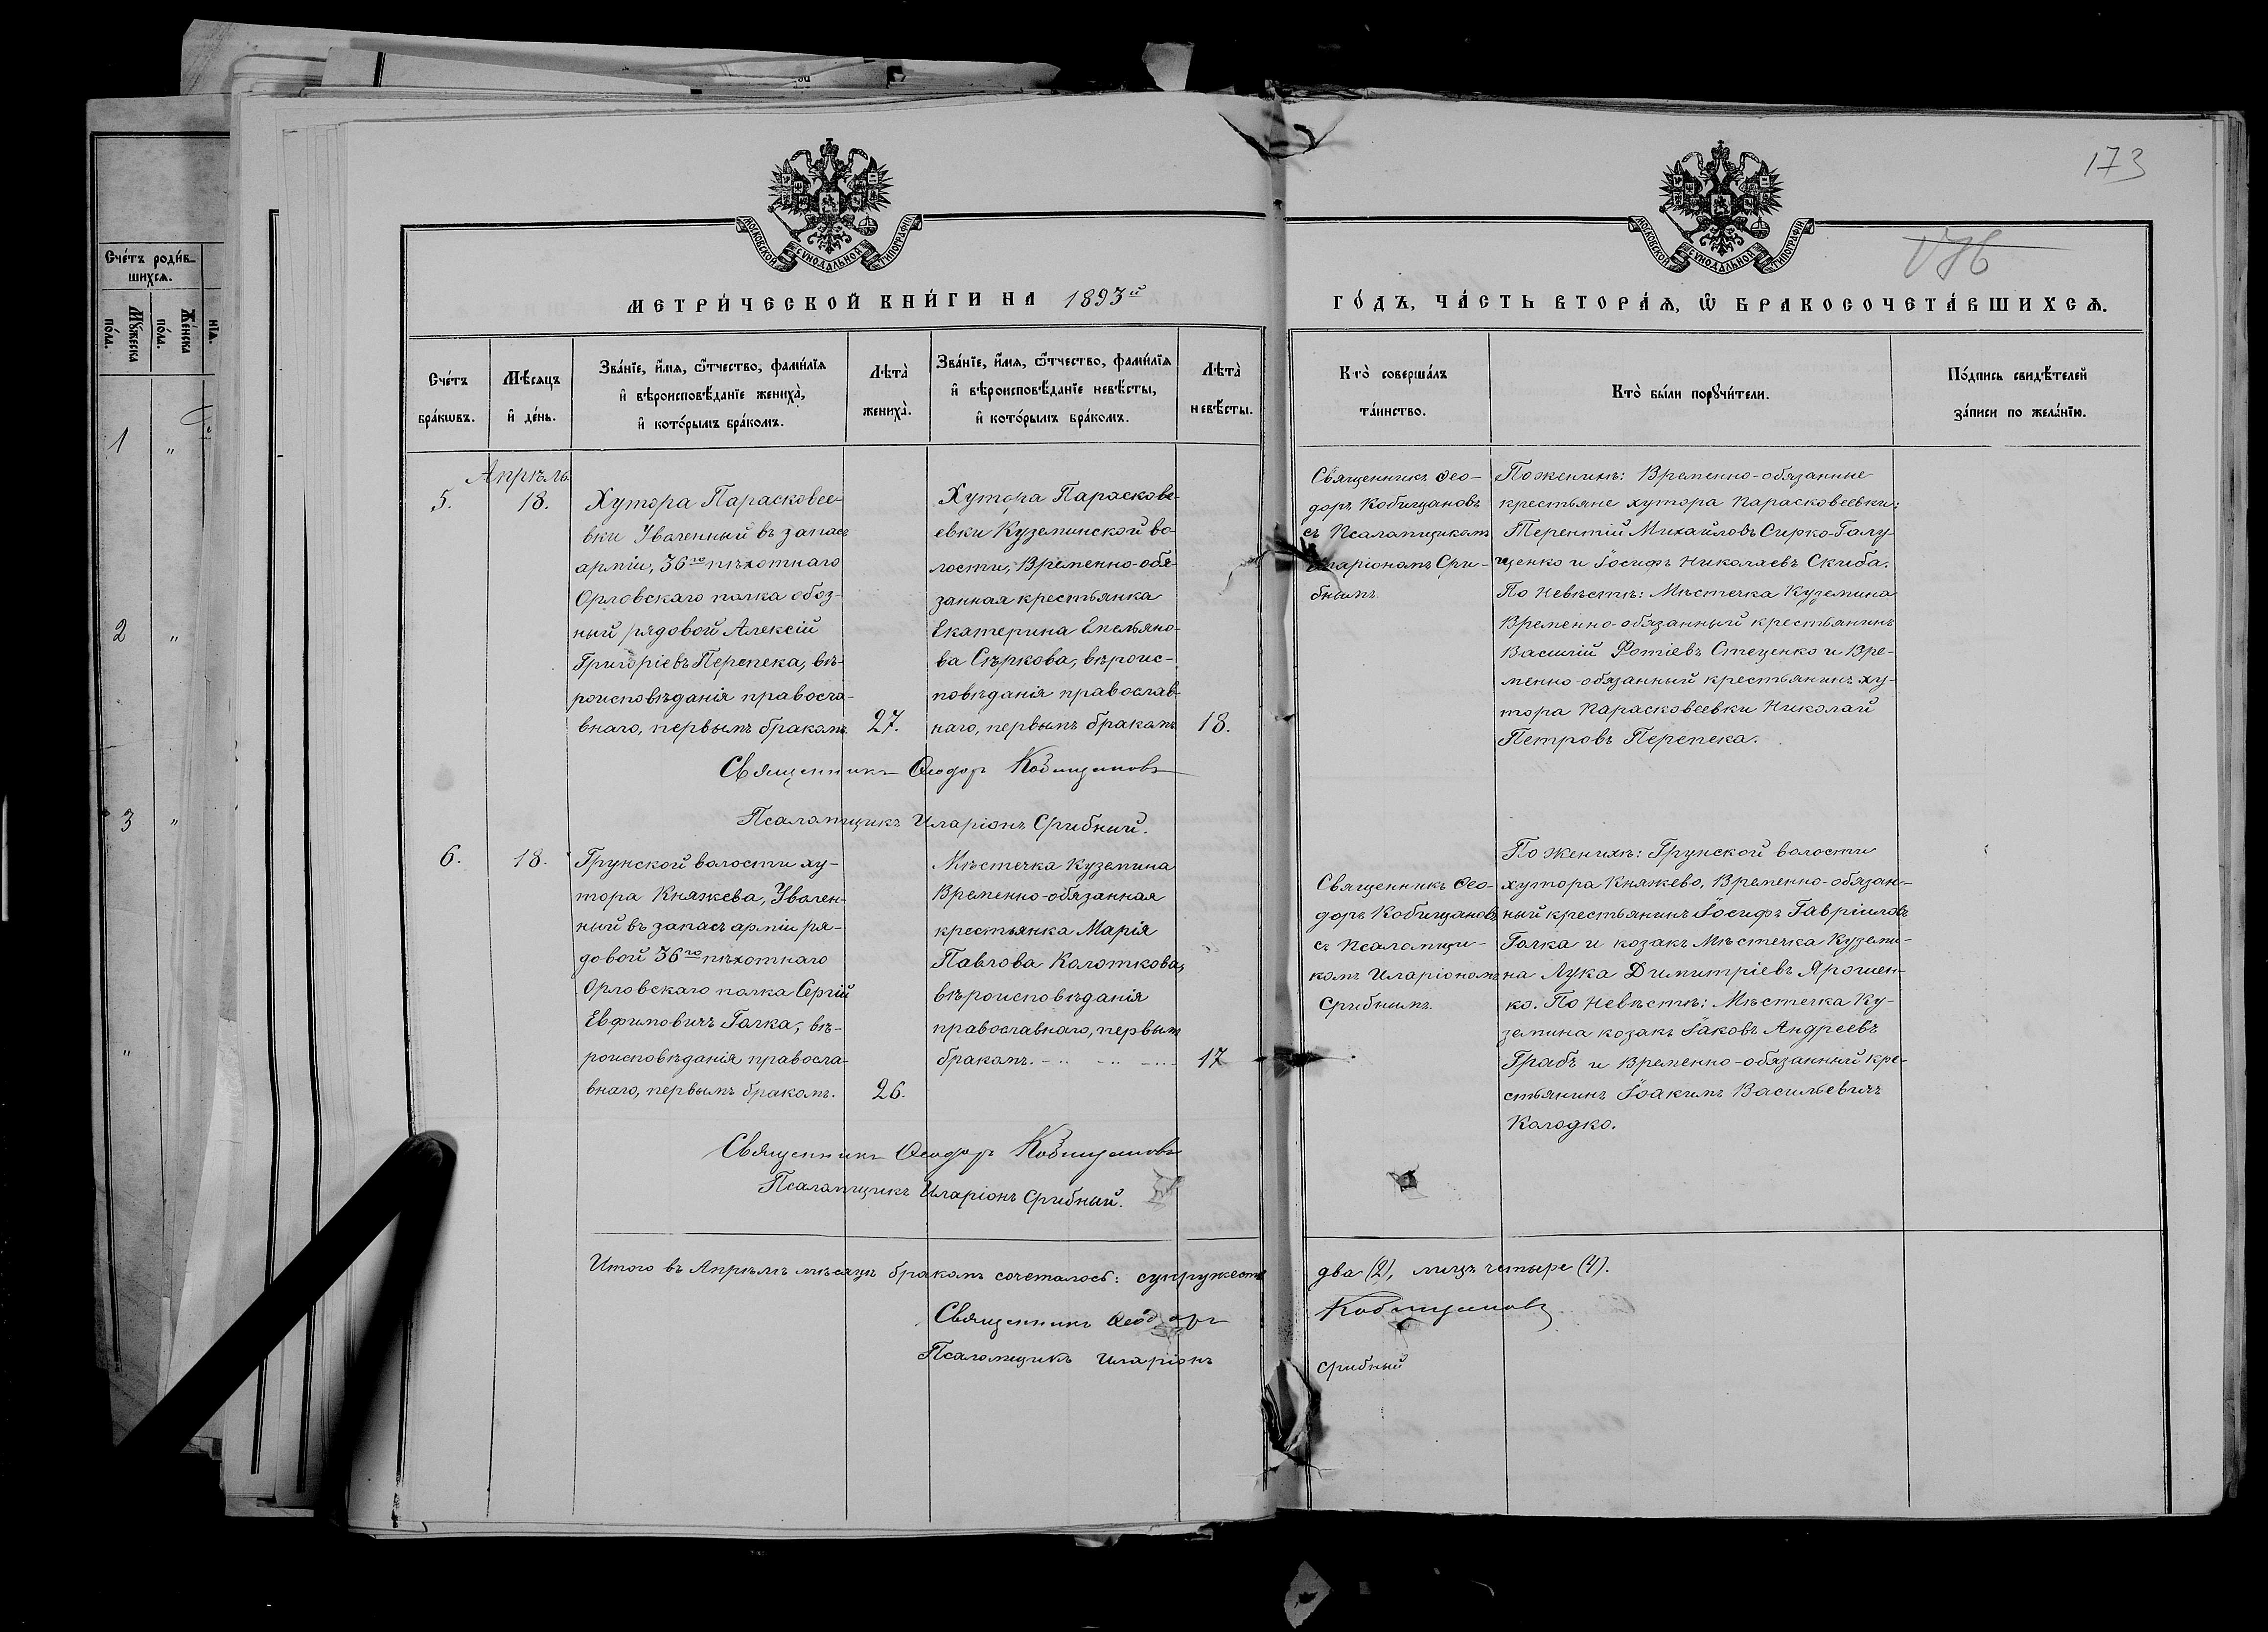 173
176
МОСКОВСКОЙ СѴНОДАЛЬНОЙ ТИПОГРАФІИ
МОСКОВСКОЙ СѴНОДАЛЬНОЙ ТИПОГРАФІИ
МЕТРИ́ЧЕСКОЙ КНИ́ГИ НА 1893й
ГО́ДЪ, ЧА́СТЬ ВТОРА́Ѧ, Ѽ БРАКОСОЧЕТА́ВШИХСѦ.
Сче́тъ роди́в-
шихсѧ.
Мꙋ́жеска
по́ла.
Же́нска
по́ла.
нїѧ.
1 "
2 "
3 "
"
Сче́тъ
бра́кѡвъ.
Мѣ́сѧцъ
и҆ де́нь.
Зва́нїе, и҆́мѧ, ѻ҆́тчество, фами́лїѧ
и҆ вѣроисповѣ́данїе жениха̀,
и҆ кото́рымъ бра́комъ.
Лѣта̀
жениха̀.
Зва́нїе, и҆́мѧ, ѻ҆́тчество, фами́лїѧ
и҆ вѣроисповѣ́данїе невѣ́сты,
и҆ кото́рымъ бра́комъ.
Лѣта̀
невѣ́сты.
Кто̀ соверша́лъ
та́инство.
Кто̀ бы́ли порꙋчи́тели.
По́дпись свидѣ́телей
за́писи по жела́нїю.
Апрѣль
5.
18.
Хутора Парасковее-
вки Уволенный въ запасъ
арміи, 36го пѣхотнаго
Орловскаго полка обоз-
ный рядовой Алексій
Григоріевъ Перепека, вѣ-
роисповѣданія правосла-
внаго, первымъ бракомъ.
27.
Хутора Параскове-
евки Куземинской во-
лости, Временно-обя-
занная крестьянка
Екатерина Емельяно-
ва Сѣркова, вѣроис-
повѣданія православ-
наго, первымъ бракомъ
18.
Священникъ Ѳео-
доръ Кобищановъ
съ Псаломщикомъ
Иларіономъ Сри-
бнымъ.
По женихѣ: Временно-обязанные
крестьяне хутора Парасковеевки:
Терентій Михайловъ Сирко-Галу-
щенко и Іосифъ Николаевъ Скиба.
По Невѣстѣ: Мѣстечка Куземина
Временно-обязанный крестьянинъ
Василій Фотіевъ Стеценко и Вре-
менно-обязанный крестьянинъ ху-
тора Парасковеевки Николай
Петровъ Перепека.
Священникъ Ѳеодоръ Кобищановъ
Псаломщикъ Иларіонъ Срибный.
6.
18.
Грунской волости ху-
тора Княжева, Уволен-
ный въ запасъ арміи ря-
довой 36го пѣхотнаго
Орловскаго полка Сергій
Евфимовичъ Галка, вѣ-
роисповѣданія правосла-
внаго, первымъ бракомъ.
26.
Мѣстечка Куземина
Временно-обязанная
крестьянка Марія
Павлова Колоткова,
вѣроисповѣданія
православнаго, первым
бракомъ.
17
Священникъ Ѳео-
доръ Кобищановъ
съ Псаломщи-
комъ Иларіономъ
Срибнымъ.
По Женихѣ: Грунской волости
хутора Княжево, Временно-обязан-
ный крестьянинъ Іосифъ Гавріиловъ
Галка и козакъ Мѣстечка Куземи-
на Лука Димитріевъ Ярошен-
ко. По Невѣстѣ: Мѣстечка Ку-
земина козакъ Іаковъ Андреевъ
Грабъ и Временно-обязанный кре-
стьянинъ Іоакимъ Васильевичъ
Колодко.
Священникъ Ѳеодоръ Кобищановъ
Псаломщикъ Иларіонъ Срибный.
Итого въ Апрѣлѣ мѣсяцѣ бракомъ сочеталось: супружествъ два (2), лицъ четыре (4).
Священникъ Ѳеодоръ Кобищановъ
Псаломщикъ Иларіонъ Срибный